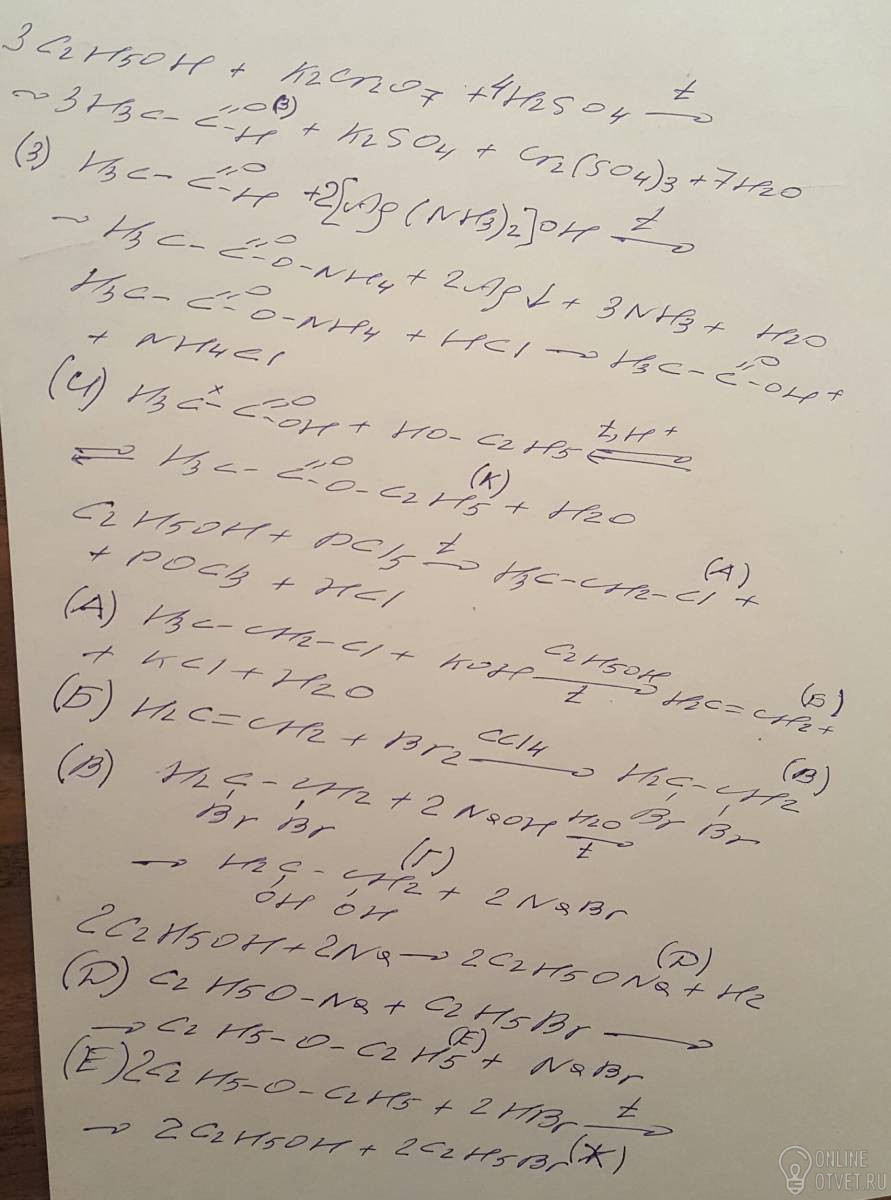 3C2H5OH + K2Cr2O7 + 4H2SO4 t→
→ 3H3C-C=O-H (З) + K2SO4 + Cr2(SO4)3 + 7H2O
(З) H3C-C=O-H + 2[Ag(NH3)2]OH t→
→ H3C-C=O-O-NH4 + 2Ag↓ + 3NH3 + H2O
H3C-C=O-O-NH4 + HCl → H3C-C=O-OH +
+ NH4Cl
(И) H3C-C=O-OH + HO-C2H5 t,H+ ⇌
⇌ H3C-C=O-O-C2H5 (К) + H2O
C2H5OH + PCl5 t→ H3C-CH2-Cl (А) +
+ POCl3 + HCl
(А) H3C-CH2-Cl + KOH C2H5OH t→ H2C=CH2 (Б) +
+ KCl + H2O
(Б) H2C=CH2 + Br2 CCl4→ H2C-CH2 (В)
Br Br
(В) H2C-CH2 + 2NaOH H2O t→
Br Br
→ H2C-CH2 (Г) + 2NaBr
OH OH
2C2H5OH + 2Na → 2C2H5ONa (D) + H2
(D) C2H5O-Na + C2H5Br →
→ C2H5-O-C2H5 (Е) + NaBr
(Е) 2C2H5-O-C2H5 + 2HBr t→
→ 2C2H5OH + 2C2H5Br (Ж)
ONLINE
OTVET.RU